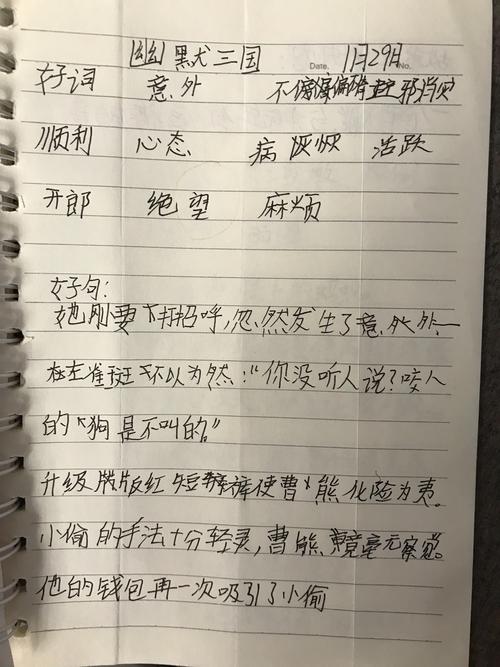 幽默三国 Date. 1月29日 No.
好词 意外 不偏
顺利 心态 病恹恹 活跃
开郎 绝望 麻烦
好句:
她刚要下打招呼,忽然发生了意外外
以为然:“你没听人说?咬人
的“狗是不叫的。”
升级版版红短裤裤使曹熊化险为夷。
小偷的手法十分轻灵,曹熊竟毫无察觉。
他的钱包再一次吸引了小偷